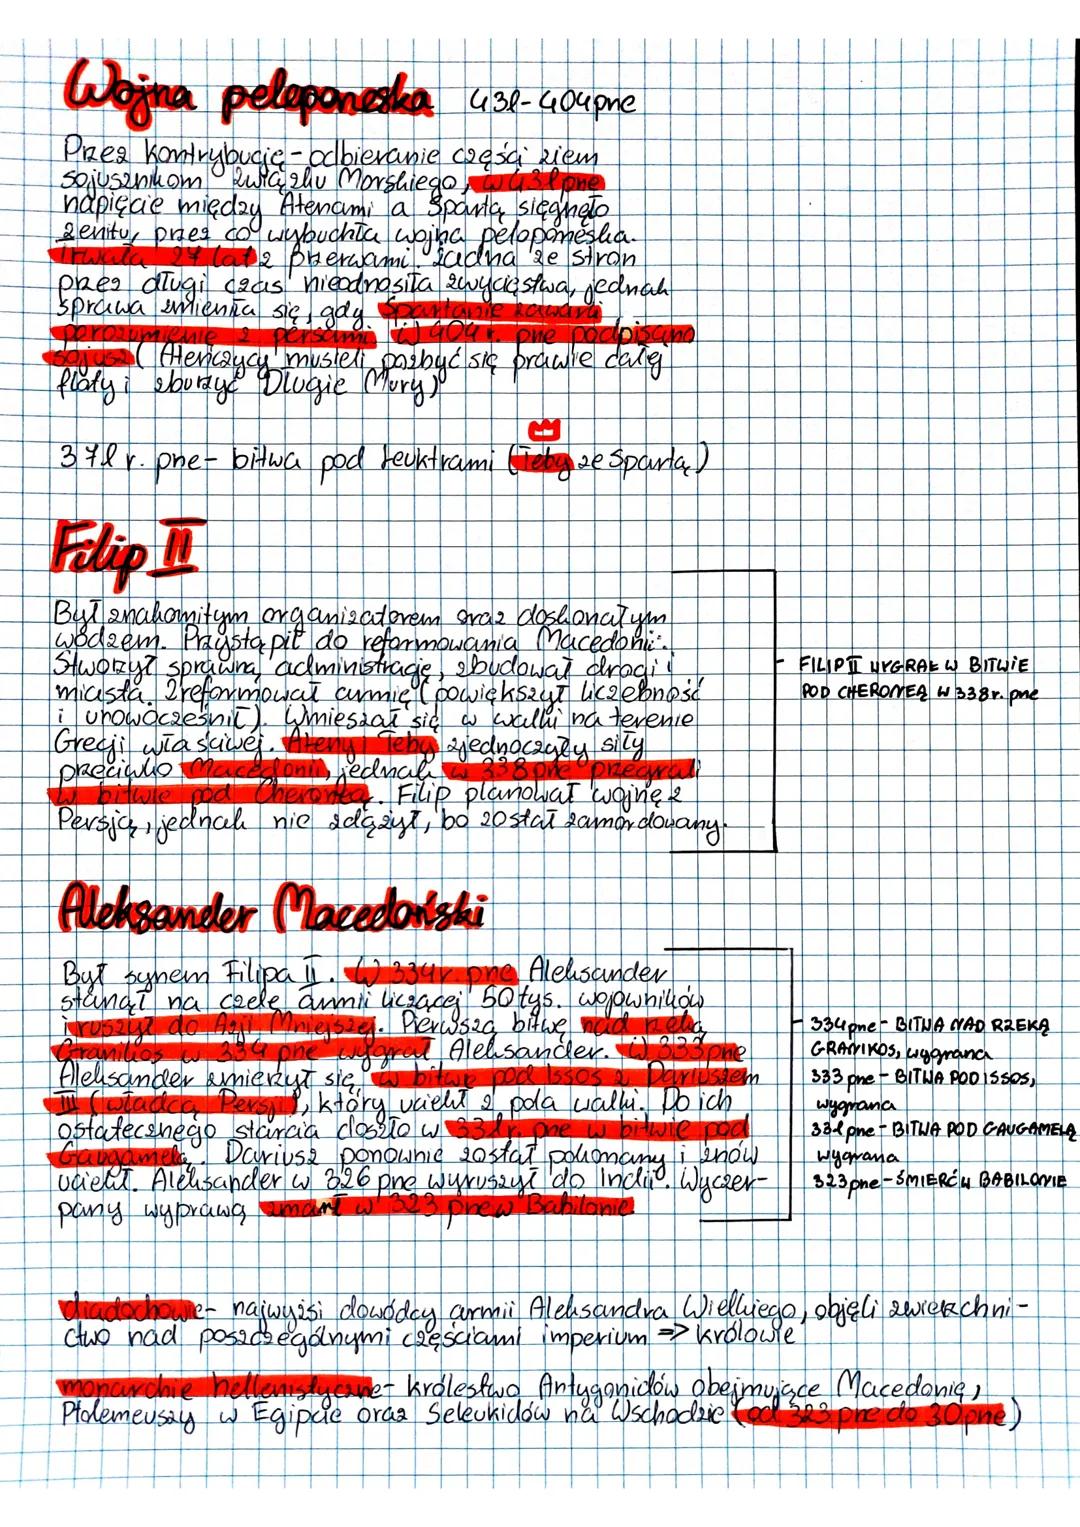 Wojna peloponeska 431-404pne
Przez kontrybucję - odbieranie części ziem
sojusznikom Związku Morskiego, w 431pne
napięcie między Atenami a Spartą sięgnęło
zenitu, przez co wybuchła wojna peloponeska.
Trwała 27 lat z przerwami. Żadna ze stron
przez długi czas nieodnosiła zwycięstwa, jednak
sprawa zmieniła się, gdy Spartanie zawarli
porozumienie z persami. W 404 r. pne podpisano
sojusz (Ateńczycy musieli pozbyć się prawie całej
floty i zburzyć Długie Mury)
371 r. pne - bitwa pod Leuktrami (Teby ze Spartą)
Filip II
Był znakomitym organizatorem oraz doskonałym
wodzem. Przystąpił do reformowania Macedonii:
Stworzył sprawną administrację, zbudował drogi i
miasta. Zreformował armię (powiększył liczebność
i unowocześnił). Wmieszał się w walki na terenie
Grecji właściwej. Ateny i Teby zjednoczyły siły
przeciwko Macedonii, jednak w 338pne przegrali
w bitwie pod Cheroneą. Filip planował wojnę z
Persją, jednak nie zdążył, bo został zamordowany.
FILIP II WYGRAŁ W BITWIE
POD CHERONEĄ W 338r. pne
Aleksander Macedoński
Był synem Filipa II. W 334r. pne Aleksander
stanął na czele armii liczącej 50tys. wojowników
i ruszył do Azji Mniejszej. Pierwszą bitwę nad rzeką
Granikos w 334 pne wygrał Aleksander. W 333pne
Aleksander zmierzył się w bitwie pod Issos z Dariuszem
III (władcą Persji), który uciekł z pola walki. Do ich
ostatecznego starcia doszło w 331r. pne w bitwie pod
Gaugamelą. Dariusz ponownie został pokonany i znów
uciekł. Aleksander w 326 pne wyruszył do Indii. Wyczer-
pany wyprawą zmarł w 323 pne w Babilonie.
334pne - BITWA NAD RZEKĄ
GRANIKOS, wygrana
333 pne - BITWA POD ISSOS,
wygrana
331pne - BITWA POD GAUGAMELĄ
wygrana
323pne - ŚMIERĆ W BABILONIE
diadochowie - najwyżsi dowódcy armii Aleksandra Wielkiego, objęli zwierzchni-
ctwo nad poszczególnymi częściami imperium => królowie
monarchie hellenistyczne - królestwo Antygonidów obejmujące Macedonię,
Ptolemeuszy w Egipcie oraz Seleukidów na Wschodzie (od 323 pne do 30pne)